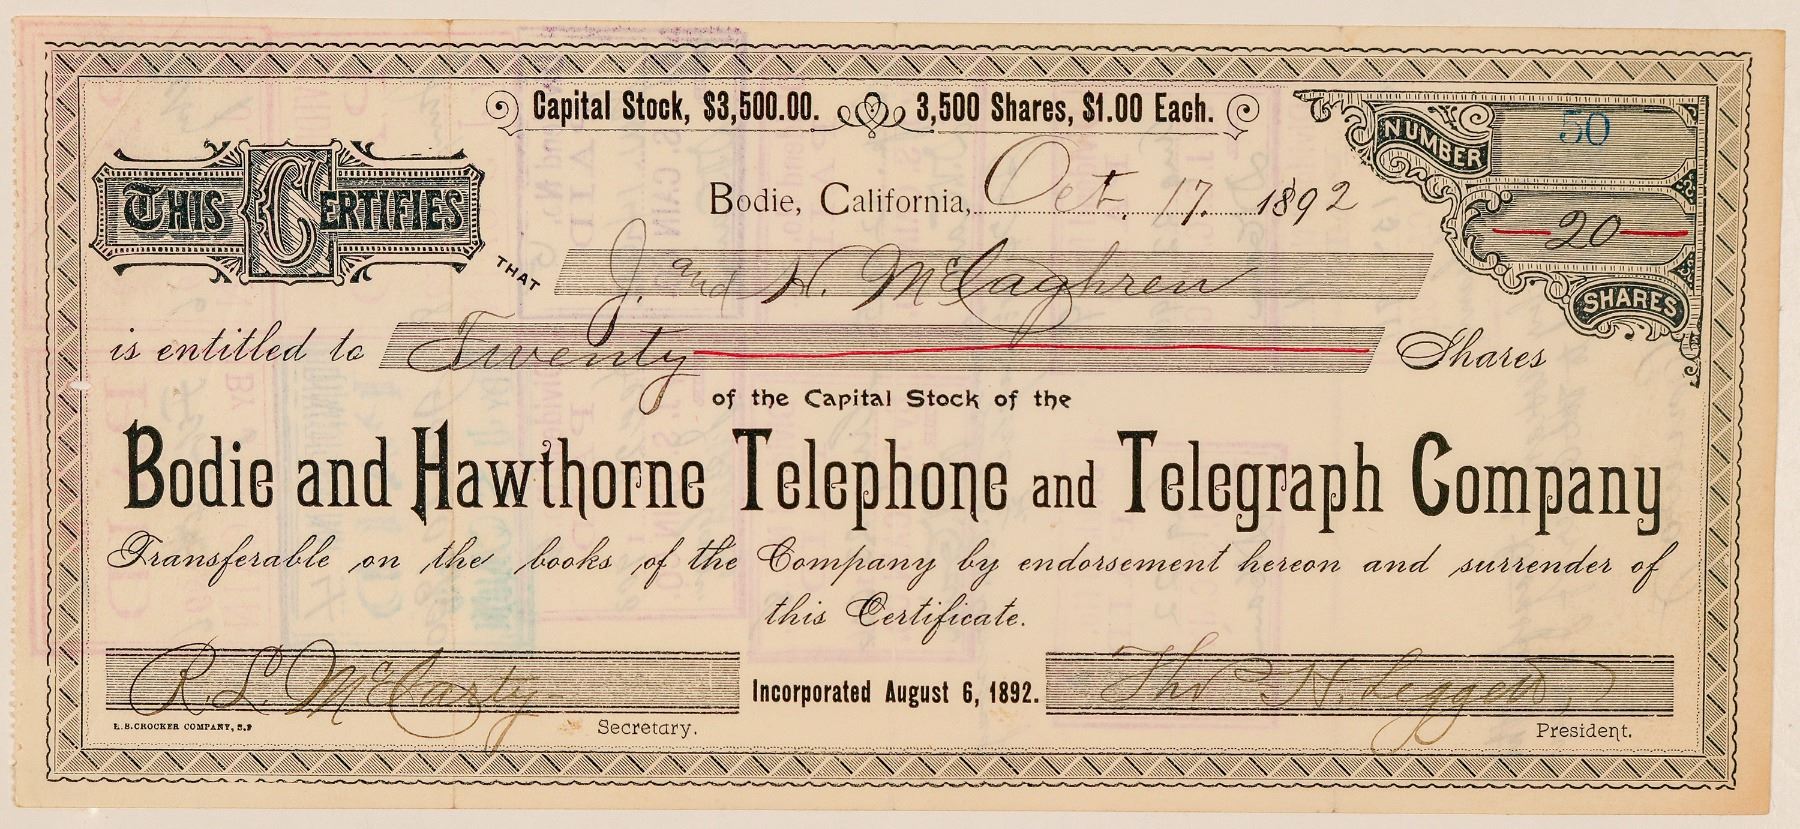 Capital Stock, $3,500.00. 3,500 Shares, $1.00 Each.
NUMBER 50
THIS CERTIFIES
Bodie, California, Oct. 17. 1892
20
SHARES
THAT J. and H. McCaghren
is entitled to Twenty Shares
of the Capital Stock of the
Bodie and Hawthorne Telephone and Telegraph Company
Transferable on the books of the Company by endorsement hereon and surrender of
this Certificate.
R. L. McCarty Incorporated August 6, 1892. Thos H. Leggett,
H.S.CROCKER COMPANY, S.F Secretary. President.